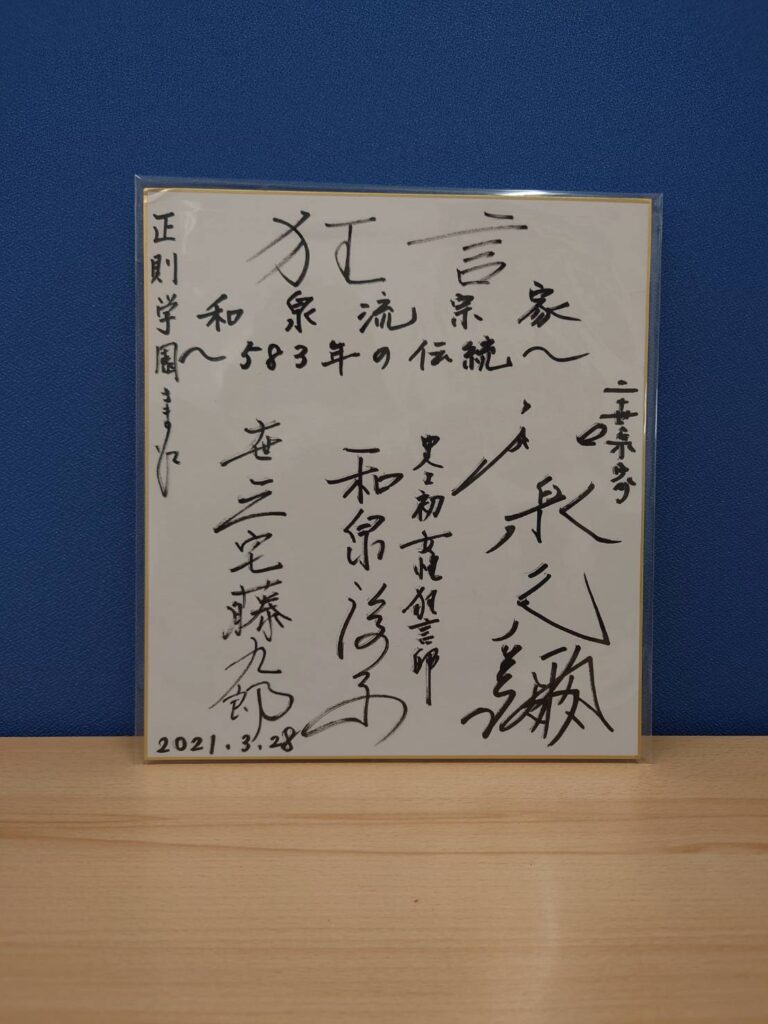 狂言
和泉流宗家
〜583年の伝統〜
二十世宗家
和泉元彌
史上初女性狂言師
和泉淳子
十世三宅藤九郎
正則学園さま江
2021.3.28